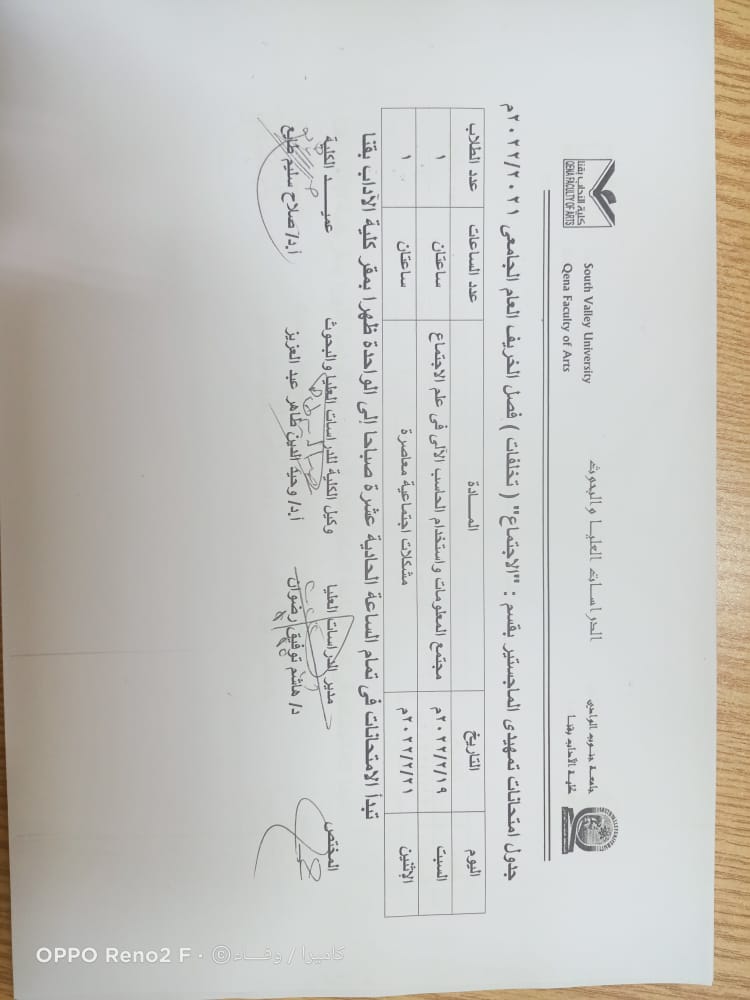 جامعة جنوب الوادي
كلية الآداب بقنا
الدراسات العليا والبحوث
South Valley University
Qena Faculty of Arts
كلية الآداب بقنا
QENA FACULTY OF ARTS
جدول امتحانات تمهيدى الماجستير بقسم : "الاجتماع" ( تخلفات ) فصل الخريف العام الجامعى ٢٠٢٢/٢٠٢١م
اليوم التاريخ المــادة عدد الساعات عدد الطلاب
السبت ٢٠٢٢/٢/١٩م مجتمع المعلومات واستخدام الحاسب الآلى فى علم الاجتماع ساعتان ١
الإثنين ٢٠٢٢/٢/٢١م مشكلات اجتماعية معاصرة ساعتان ١
تبدأ الامتحانات فى تمام الساعة الحادية عشرة صباحا إلى الواحدة ظهرا بمقر كلية الآداب بقنا
المختص مدير الدراسات العليا وكيل الكلية للدراسات العليا والبحوث عميــد الكلية
د/ هاشم توفيق رضوان أ.د/ وحيد الدين طاهر عبد العزيز أ.د/ صلاح سليم طايع
OPPO Reno2 F · ©كاميرا / وفــاء